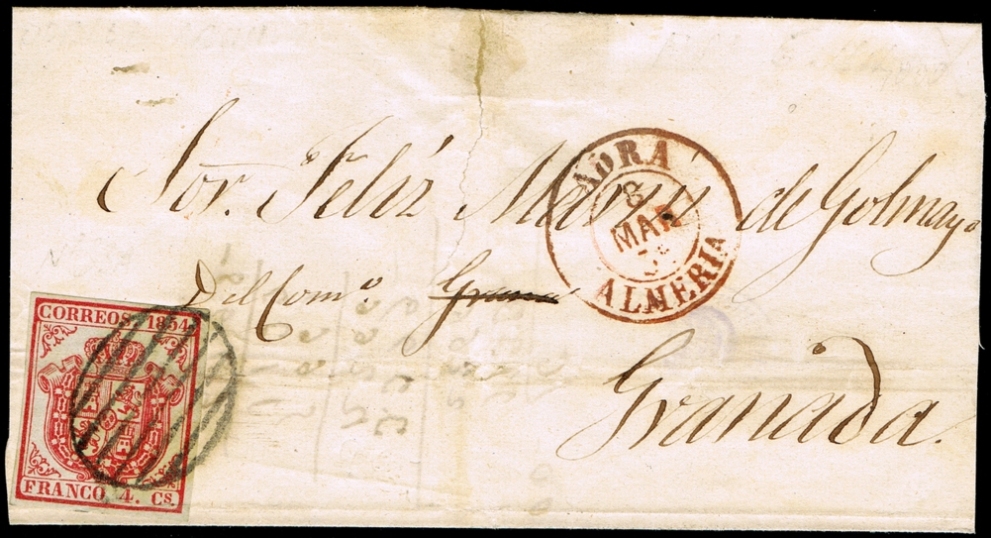 Sor. Feliz Mati de Golmayo
Del Como. Grana
Granada.
ADRA
8
MAR
ALMERIA
CORREOS 1854
FRANCO. 4. Cs.